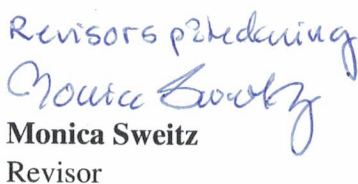 Revisors påteckning
Monica Sweitz
Monica Sweitz
Revisor